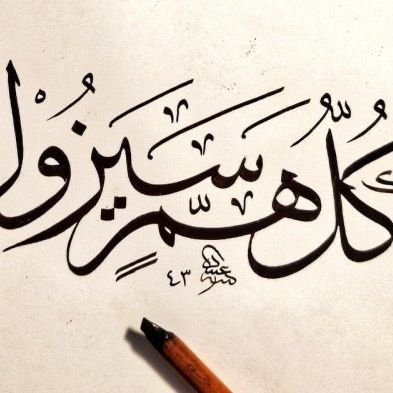 كُلُّ هَمٍّ سَيَزُولُ
٤٣